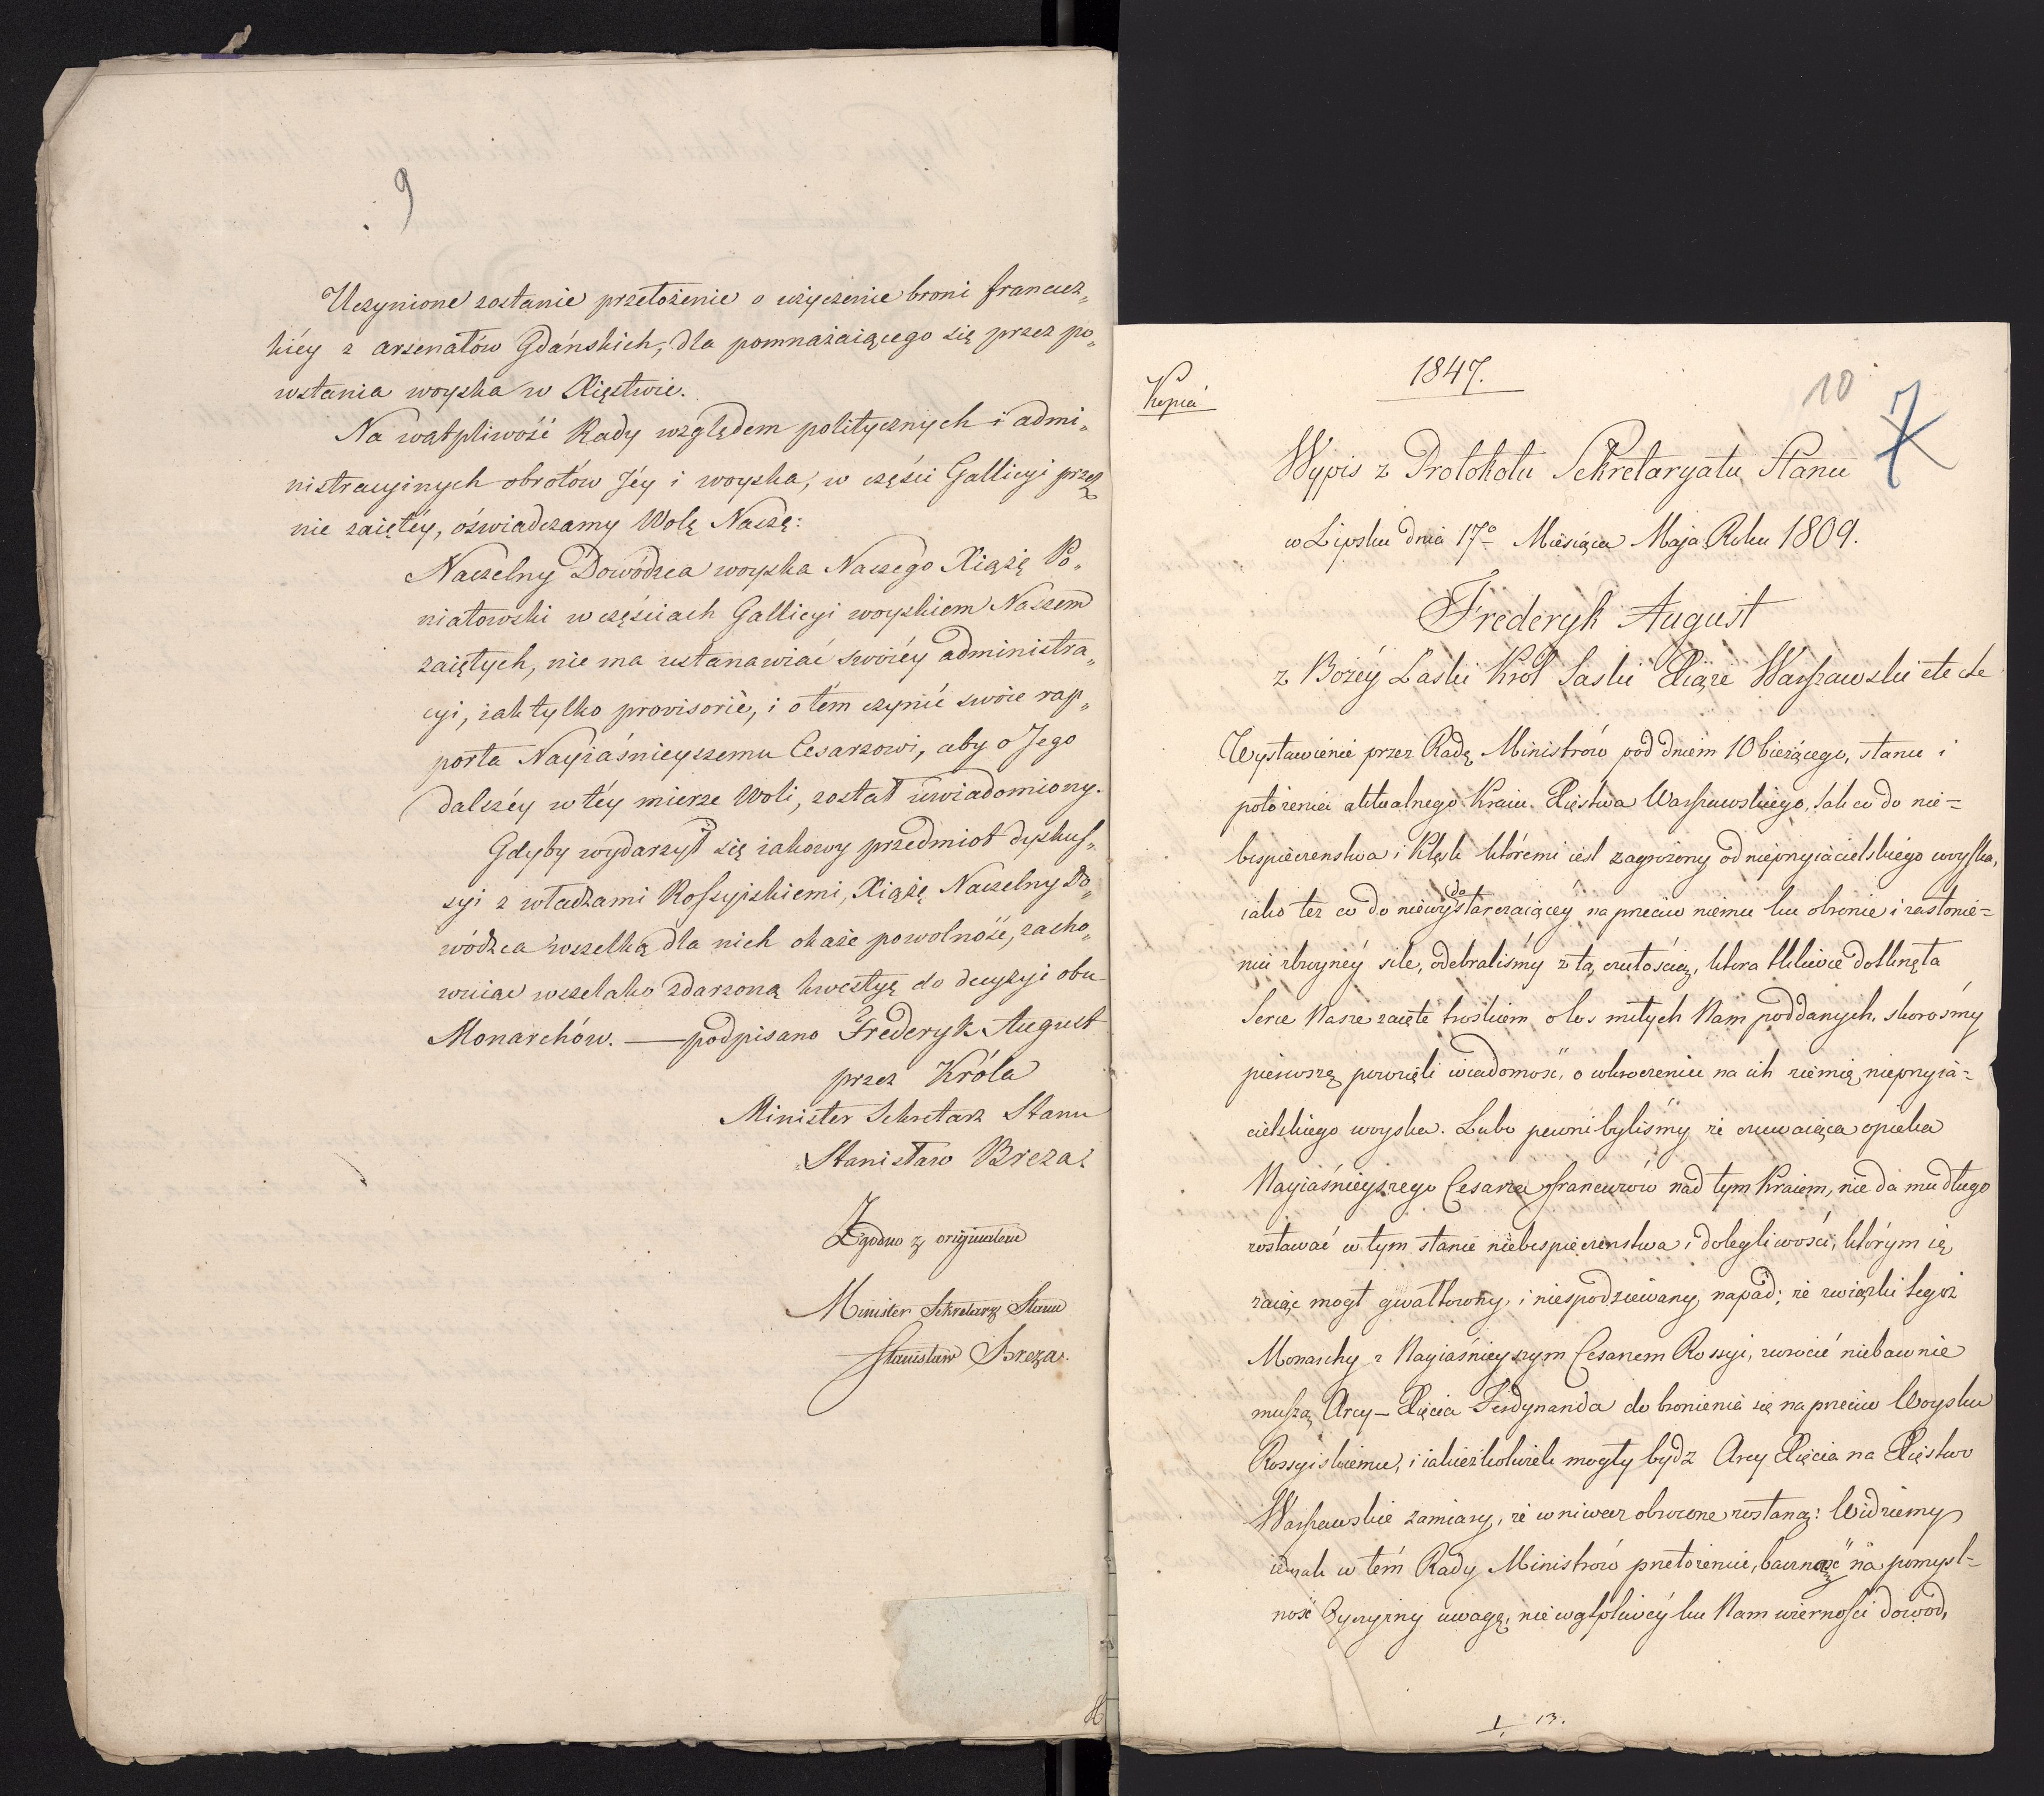 9
Uczynione zostanie przełożenie o użyczenie broni francuz„
kiéy z arsenałów Gdańskich, dla pomnażaiącego się przez po„
wstania woyska w Xięstwie.
Na wątpliwość Rady względem politycznych i admi„
nistracyinych obrotów Jéy i woyska, w części Gallicyi przez
nie zaiętéy, oświadczamy Wolę Naszę:
Naczelny Dowódzca woyska Naszego Xiążę Po„
niatowski w częściach Gallicyi woyskiem Naszem
zaiętych, nie ma ustanawiać swoiéy administra„
cyi, iak tylko provisoriè, i o tém czynić swoie rap„
porta Nayiaśnieyszemu Cesarzowi, aby o Jego
dalszéy w téy mierze Woli, został uwiadomiony.
Gdyby wydarzył się iakowy przedmiot dyskus„
syi z władzami Rossyiskiemi, Xiążę Naczelny Do„
wódzca wszelką dla nich okaże powolność, zacho„
wuiąc wszelako zdarzoną kwestyę do decyzyi obu
Monarchów. — podpisano Frederyk August
przez Króla
Minister Sekretarz Stanu
Stanisław Breza.
Zgodno z originałem
Minister Sekretarz Stanu
Stanisław Breza.
1847.
Kopia
10
7
Wypis z Protokołu Sekretaryatu Stanu
w Lipsku dnia 17º Miesiąca Maja Roku 1809.
Frederyk August
z Bożéy Łaski Król Saski Xiąże Warszawski etc etc
Wystawienie przez Radę Ministrów pod dniem 10 bieżącego, stanu i
położenia aktualnego Kraiu Xięstwa Warszawskiego, tak co do nie=
bespieczenstwa i Klęsk któremi iest zagrożony od nieprzyiacielskiego woyska,
iako też co do niewydostarczaiącey na przeciw niemu ku obronie i zasłonie=
niu zbroynéy sile, odebraliśmy z tą czułością, która tkliwie dotknęła
Serce Nasze zaięte troskiem o los miłych Nam poddanych, skorośmy
pierwszą powzięli wiadomość, o wkroczeniu na ich ziemię nieprzyia=
cielskiego woyska. Lubo pewni byliśmy że czuwaiąca opieka
Nayiaśnieyszego Cesarza francuzów nad tym Kraiem, nie da mu długo
zostawać w tym stanie niebespieczenstwa i dolegliwości, którym ią
zaiąć mogł gwałtowny i niespodziewany napad; że związki tegoż
Monarchy z Nayiaśnieyszym Cesarzem Rossyi, zwrócić niebawnie
muszą Arcy-Xięcia Ferdynanda do bronienia się na przeciw Woysku
Rossyiskiemu, i iakieżkolwiek mogły bydz Arcy Xięcia na Xięstwo
Warszawskie zamiary, że wniwecz obrócone zostaną: Widziemy
iednak w tém Rady Ministrów przełożeniu, baczność na pomyśl=
ność Oyczyzny uwagę, nie wątpliwéy ku Nam wierności dowód,
1 13.